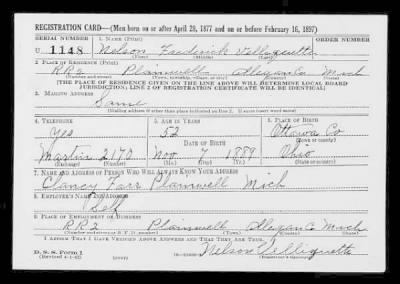 REGISTRATION CARD—(Men born on or after April 28, 1877 and on or before February 16, 1897)
SERIAL NUMBER 1. NAME (Print) ORDER NUMBER
U 1148 Nelson Frederick Velliquette
(First) (Middle) (Last)
2. PLACE OF RESIDENCE (Print)
RR2 Plainwell Allegan Co Mich
(Number and street) (Town, township, village, or city) (County) (State)
[THE PLACE OF RESIDENCE GIVEN ON THE LINE ABOVE WILL DETERMINE LOCAL BOARD
JURISDICTION; LINE 2 OF REGISTRATION CERTIFICATE WILL BE IDENTICAL]
3. MAILING ADDRESS
Same
(Mailing address if other than place indicated on line 2. If same insert word same)
4. TELEPHONE 5. AGE IN YEARS 6. PLACE OF BIRTH
Yes 52 Ottawa Co
DATE OF BIRTH (Town or county)
Martin 2170 Nov 7 1889 Ohio
(Exchange) (Number) (Mo.) (Day) (Yr.) (State or country)
7. NAME AND ADDRESS OF PERSON WHO WILL ALWAYS KNOW YOUR ADDRESS
Clancy Farr Plainwell Mich
8. EMPLOYER'S NAME AND ADDRESS
Self
9. PLACE OF EMPLOYMENT OR BUSINESS
RR2 Plainwell Allegan Co Mich
(Number and street or R. F. D. number) (Town) (County) (State)
I AFFIRM THAT I HAVE VERIFIED ABOVE ANSWERS AND THAT THEY ARE TRUE.
D. S. S. Form 1
(Revised 4-1-42) Nelson Velliquette